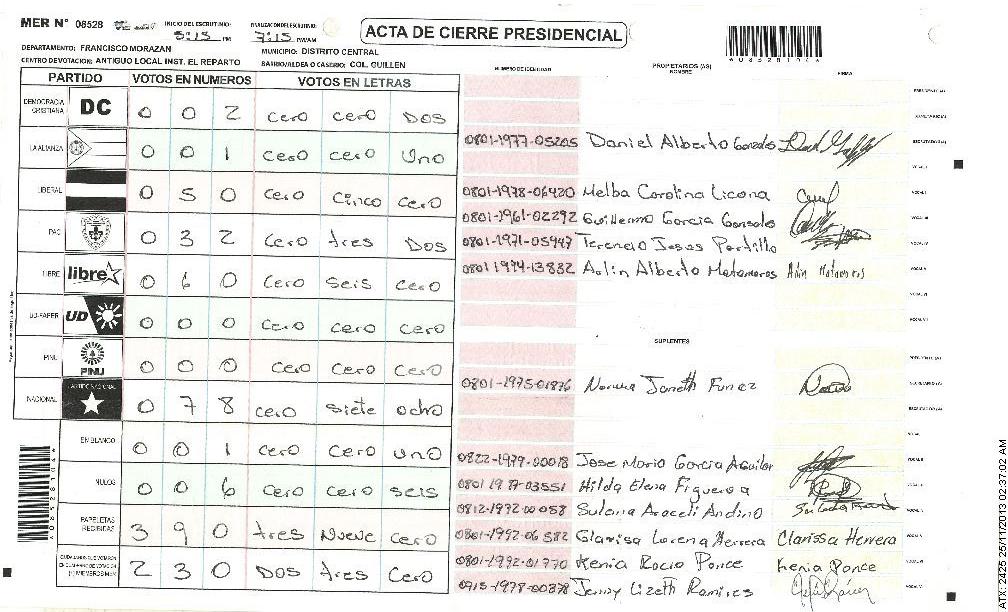 MER N° 08528
INICIO DEL ESCRUTINIO: 5:15 PM
FINALIZACION DEL ESCRUTINIO: 7:15 PM/AM
ACTA DE CIERRE PRESIDENCIAL
*08528104*
DEPARTAMENTO: FRANCISCO MORAZAN
MUNICIPIO: DISTRITO CENTRAL
CENTRO DE VOTACION: ANTIGUO LOCAL INST. EL REPARTO
BARRIO/ALDEA O CASERIO: COL. GUILLEN
PARTIDO VOTOS EN NUMEROS VOTOS EN LETRAS
NUMERO DE IDENTIDAD PROPIETARIOS (AS) NOMBRE FIRMA
DEMOCRACIA CRISTIANA DC 0 0 2 cero cero DOS
LA ALIANZA 0 0 1 cero cero Uno
LIBERAL 0 5 0 cero Cinco cero
PAC 0 3 2 cero tres DOS
LIBRE libre 0 6 0 cero seis cero
UD-FAPER UD 0 0 0 cero cero cero
PINU PINU 0 0 0 cero cero cero
NACIONAL PARTIDO NACIONAL 0 7 8 cero siete ocho
EN BLANCO 0 0 1 cero cero uno
NULOS 0 0 6 cero cero seis
PAPELETAS RECIBIDAS 3 9 0 tres Nueve cero
2 3 0 DOS tres Cero
PRESIDENTE (A)
SECRETARIO (A)
0801-1977-05205 Daniel Alberto Gonzales ESCRUTADOR (A)
VOCAL I
0801-1978-06420 Melba Carolina Licona VOCAL II
0801-1961-02292 Guillermo Garcia Gonsalo VOCAL III
0801-1971-05947 Terencio Jesus Portillo VOCAL IV
0801 1994-13832 Adin Alberto Matamoros Adin Matamoros VOCAL V
VOCAL VI
VOCAL VII
SUPLENTES
PRESIDENTE (A)
0801-1975-01876 Norma Janeth Funez SECRETARIO (A)
ESCRUTADOR (A)
VOCAL I
0822-1979-00018 Jose Mario Garcia Aguilar VOCAL II
0801 1987-03551 Hilda Elena Figueroa
0812-1972-00058 Sulana Araceli Andino
0801-1992-06582 Clarisa Lorena Herrera Clarissa Herrera
0801-1992-01770 Kenia Rocio Ponce Kenia Ponce
0715-1978-00378 Jenny Lizeth Ramires
*08528104*
ATX-2425 25/11/2013 02:37:02 AM